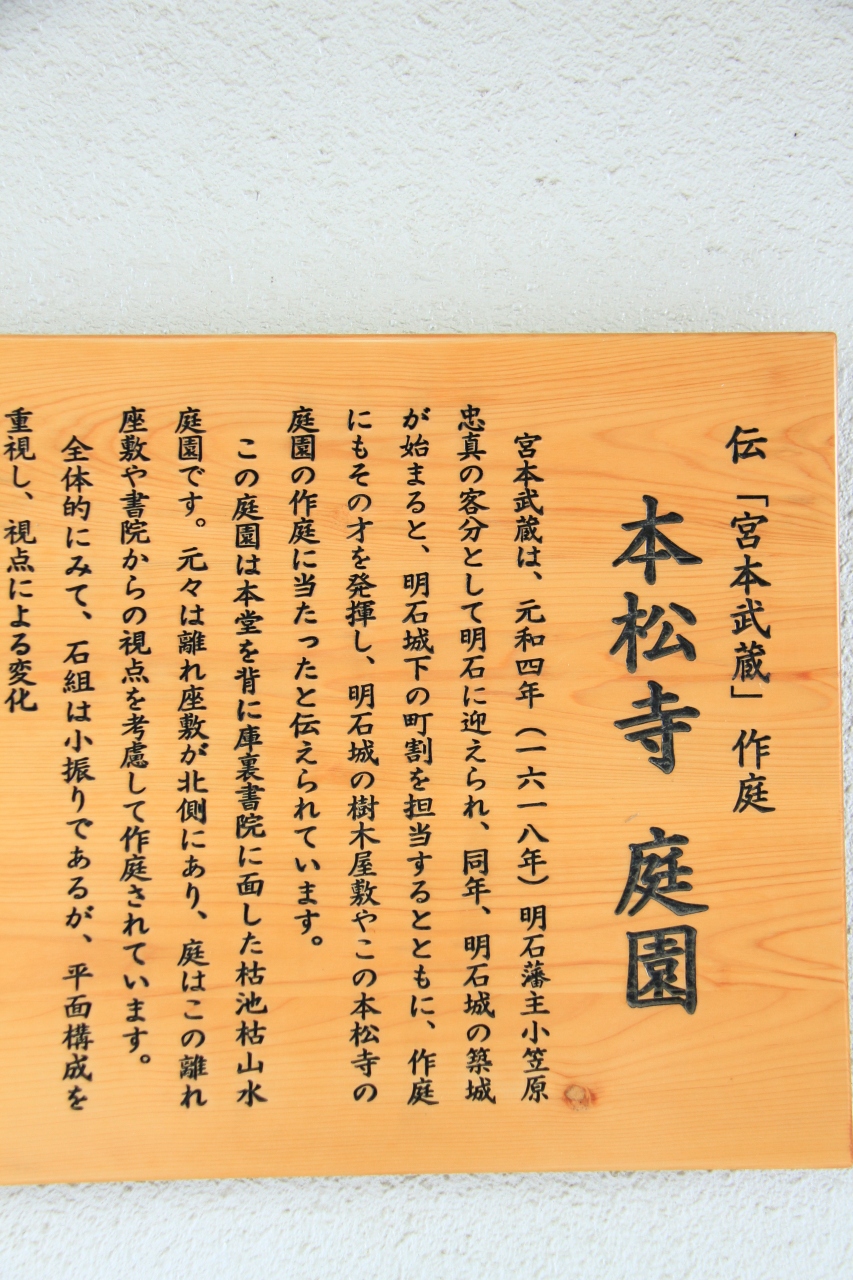 伝「宮本武蔵」作庭
本松寺 庭園
宮本武蔵は、元和四年（一六一八年）明石藩主小笠原
忠真の客分として明石に迎えられ、同年、明石城の築城
が始まると、明石城下の町割を担当するとともに、作庭
にもその才を発揮し、明石城の樹木屋敷やこの本松寺の
庭園の作庭に当たったと伝えられています。
この庭園は本堂を背に庫裏書院に面した枯池枯山水
庭園です。元々は離れ座敷が北側にあり、庭はこの離れ
座敷や書院からの視点を考慮して作庭されています。
全体的にみて、石組は小振りであるが、平面構成を
重視し、視点による変化